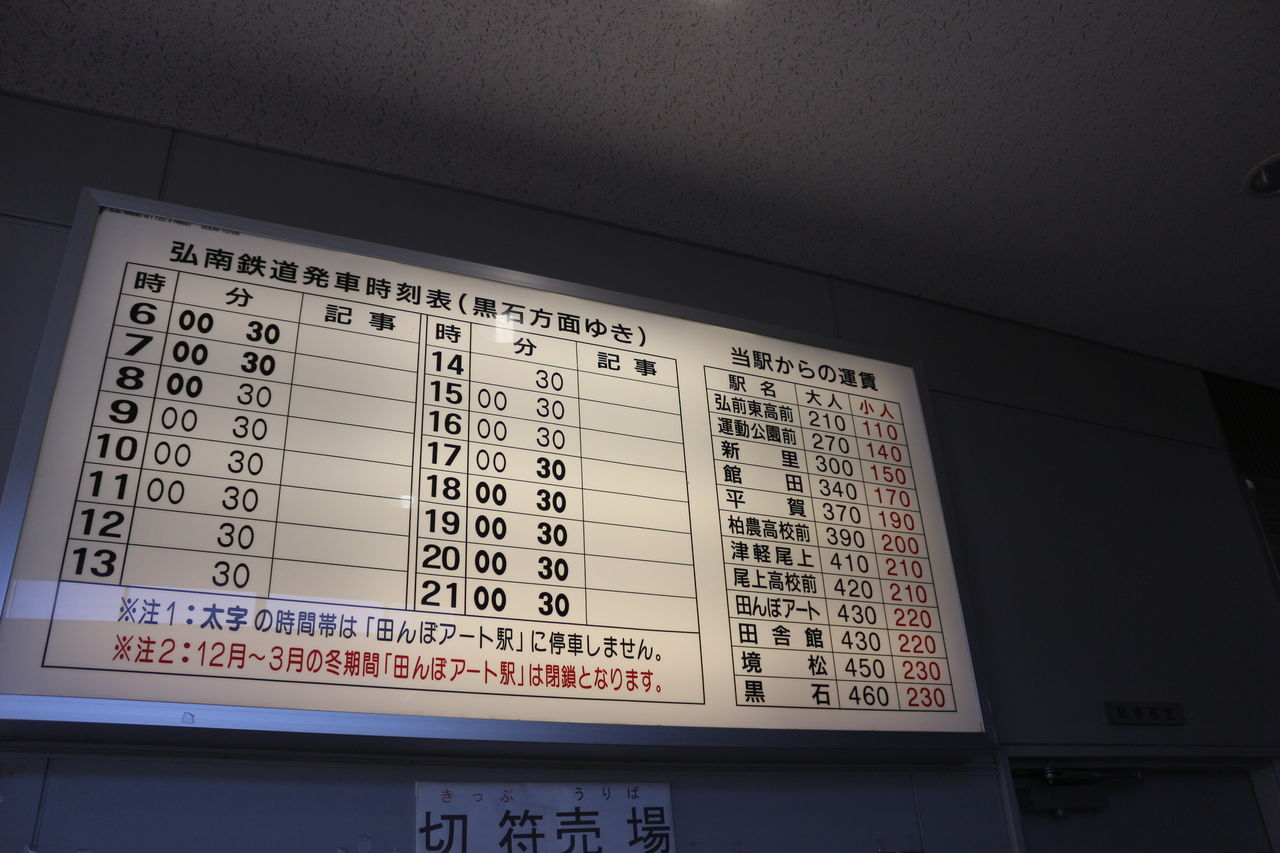 弘南鉄道発車時刻表(黒石方面ゆき)
時 分 記事
6 00 30
7 00 30
8 00 30
9 00 30
10 00 30
11 00 30
12 30
13 30
時 分 記事
14 30
15 00 30
16 00 30
17 00 30
18 00 30
19 00 30
20 00 30
21 00 30
※注1:太字の時間帯は「田んぼアート駅」に停車しません。
※注2:12月~3月の冬期間「田んぼアート駅」は閉鎖となります。
当駅からの運賃
駅名 大人 小人
弘前東高前 210 110
運動公園前 270 140
新里 300 150
館田 340 170
平賀 370 190
柏農高校前 390 200
津軽尾上 410 210
尾上高校前 420 210
田んぼアート 430 220
田舎館 430 220
境松 450 230
黒石 460 230
きっぷ うりば
切符売場